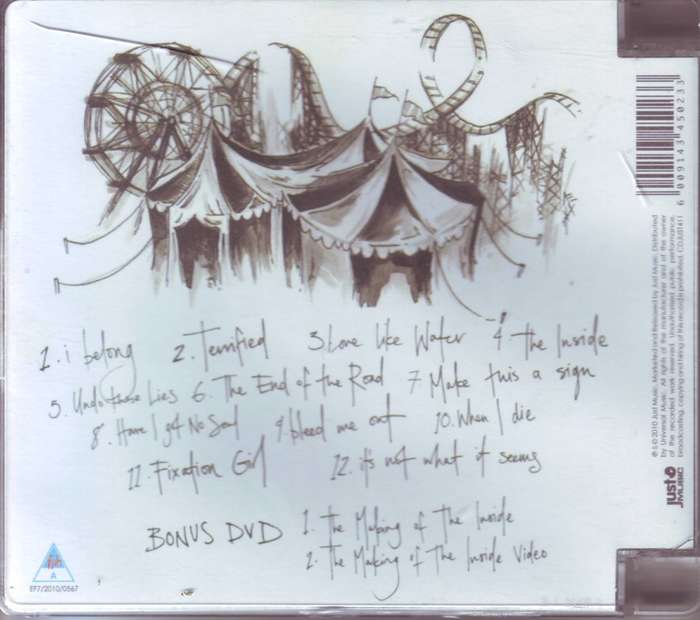 1. i belong 2. Terrified 3. Love Like Water 4 The Inside
5. Undo these Lies 6. The End of the Road 7 Make this a sign
8. Have I got No Soul 9. bleed me out 10. When I die
11. Fixation Girl 12. it's not what it seems
BONUS DVD 1. The Making of The Inside
2. The Making of The Inside Video
A
EF7/2010/0567
6 009143 450233
℗ © 2010 Just Music. Marketed and Released by Just Music. Distributed
by Universal Music. All rights of the manufacturer and of the owner
of the recorded work reserved. Unauthorised public performance,
broadcasting, copying and hiring of this record is prohibited. CDJUST411
just
MUSIC